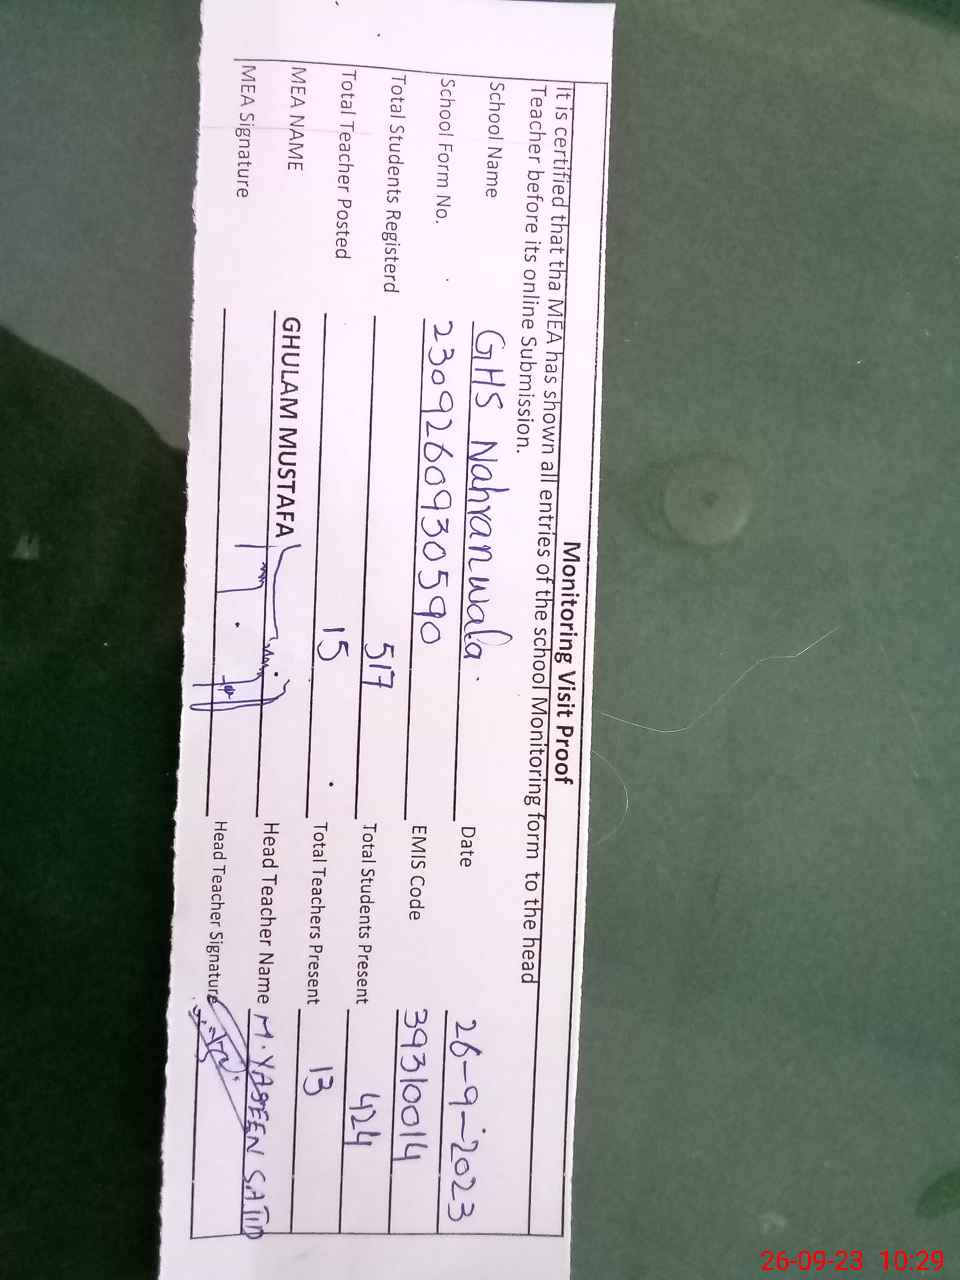 Monitoring Visit Proof
It is certified that tha MEA has shown all entries of the school Monitoring form to the head
Teacher before its online Submission.
School Name GHS Nahranwala. Date 26-9-2023
School Form No. 2309260930590 EMIS Code 39310014
Total Students Registerd 517 Total Students Present 424
Total Teacher Posted 15 Total Teachers Present 13
MEA NAME GHULAM MUSTAFA Head Teacher Name M. YASEEN SAJID
MEA Signature Head Teacher Signature
26-09-23 10:29